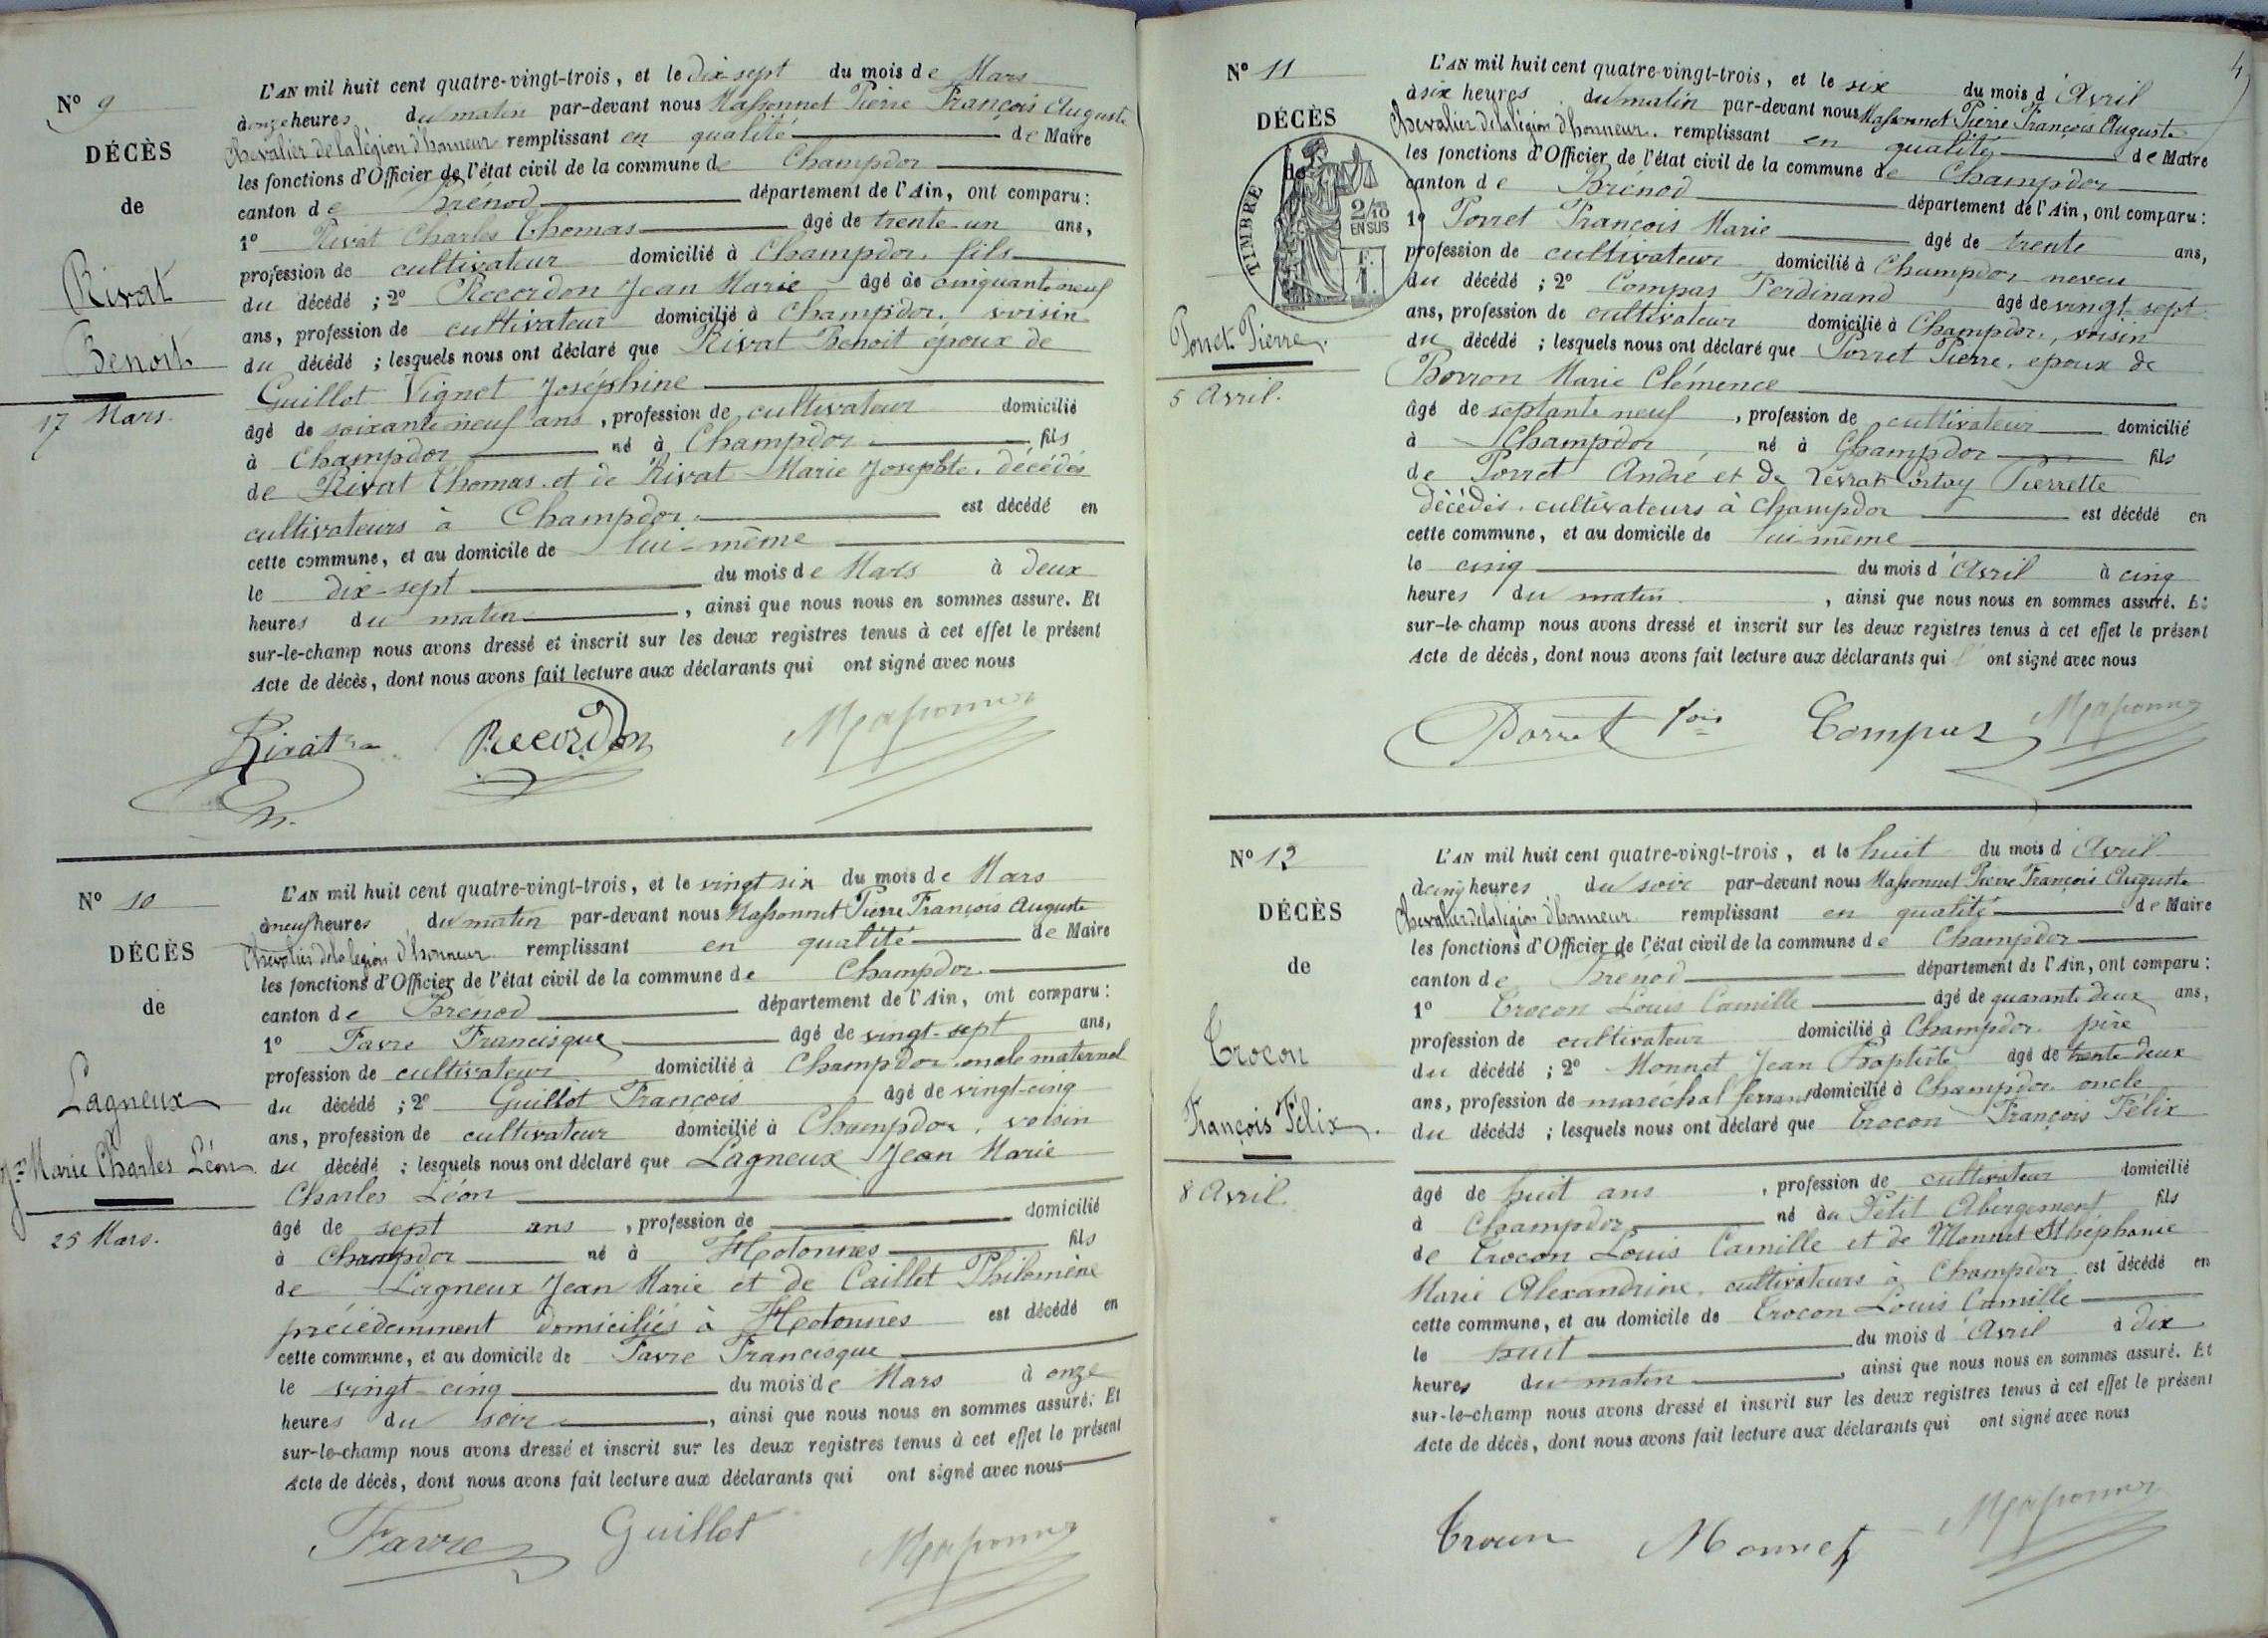 Nº 9
DÉCÈS
de
Rivat
Benoit
17 Mars.
L'AN mil huit cent quatre-vingt-trois, et le dix-sept du mois de Mars
à onze heures du matin par-devant nous Massonnet Pierre François Auguste
Chevalier de la légion d'honneur remplissant en qualité de Maire
les fonctions d'Officier de l'état civil de la commune de Champdor
canton de Brénod département de l'Ain, ont comparu:
1º Rivat Charles Thomas âgé de trente-un ans,
profession de cultivateur domicilié à Champdor, fils
du décédé ; 2º Recordon Jean Marie âgé de cinquante neuf
ans, profession de cultivateur domicilié à Champdor, voisin
du décédé ; lesquels nous ont déclaré que Rivat Benoit époux de
Guillot Vignet Joséphine
âgé de soixante neuf ans, profession de cultivateur domicilié
à Champdor né à Champdor fils
de Rivat Thomas et de Rivat Marie Josephte, décédés
cultivateurs à Champdor. est décédé en
cette commune, et au domicile de lui-même
le dix-sept du mois de Mars à deux
heures du matin, ainsi que nous nous en sommes assuré. Et
sur-le-champ nous avons dressé et inscrit sur les deux registres tenus à cet effet le présent
Acte de décès, dont nous avons fait lecture aux déclarants qui ont signé avec nous
Rivat Recordon Massonnet
Nº 10
DÉCÈS
de
Lagneux
Jn Marie Charles Léon
25 Mars.
L'AN mil huit cent quatre-vingt-trois, et le vingt six du mois de Mars
à neuf heures du matin par-devant nous Massonnet Pierre François Auguste
Chevalier de la légion d'honneur remplissant en qualité de Maire
les fonctions d'Officier de l'état civil de la commune de Champdor
canton de Brénod département de l'Ain, ont comparu:
1º Favre Francisque âgé de vingt-sept ans,
profession de cultivateur domicilié à Champdor oncle maternel
du décédé ; 2º Guillot François âgé de vingt-cinq
ans, profession de cultivateur domicilié à Champdor, voisin
du décédé ; lesquels nous ont déclaré que Lagneux Jean Marie
Charles Léon
âgé de sept ans, profession de domicilié
à Champdor né à Hotonnes fils
de Lagneux Jean Marie et de Caillet Philomène
précédemment domiciliés à Hotonnes est décédé en
cette commune, et au domicile de Favre Francisque
le vingt-cinq du mois de Mars à onze
heures du soir, ainsi que nous nous en sommes assuré. Et
sur-le-champ nous avons dressé et inscrit sur les deux registres tenus à cet effet le présent
Acte de décès, dont nous avons fait lecture aux déclarants qui ont signé avec nous
Favre Guillot Massonnet
Nº 11
DÉCÈS
de
TIMBRE
2/10
EN SUS
Porret Pierre.
5 Avril.
L'AN mil huit cent quatre-vingt-trois, et le six du mois d'Avril
à six heures du matin par-devant nous Massonnet Pierre François Auguste
Chevalier de la légion d'honneur. remplissant en qualité de Maire
les fonctions d'Officier de l'état civil de la commune de Champdor
canton de Brénod département de l'Ain, ont comparu:
1º Porret François Marie âgé de trente ans,
profession de cultivateur domicilié à Champdor neveu
du décédé ; 2º Compas Ferdinand âgé de vingt-sept
ans, profession de cultivateur domicilié à Champdor, voisin
du décédé ; lesquels nous ont déclaré que Porret Pierre, époux de
Borron Marie Clémence
âgé de septante neuf, profession de cultivateur domicilié
à Champdor né à Champdor fils
de Porret André et de Pierrette
décédés, cultivateurs à Champdor est décédé en
cette commune, et au domicile de lui même
le cinq du mois d'Avril à cinq
heures du matin, ainsi que nous nous en sommes assuré. Et
sur-le-champ nous avons dressé et inscrit sur les deux registres tenus à cet effet le présent
Acte de décès, dont nous avons fait lecture aux déclarants qui ont signé avec nous
Porret fois Compas Massonnet
Nº 12
DÉCÈS
de
Crocon
François Félix.
8 Avril.
L'AN mil huit cent quatre-vingt-trois, et le huit du mois d'Avril
à cinq heures du soir par-devant nous Massonnet Pierre François Auguste
Chevalier de la légion d'honneur remplissant en qualité de Maire
les fonctions d'Officier de l'état civil de la commune de Champdor
canton de Brénod département de l'Ain, ont comparu:
1º Crocon Louis Camille âgé de quarante deux ans,
profession de cultivateur domicilié à Champdor père
du décédé ; 2º Monnet Jean Baptiste âgé de trente deux
ans, profession de maréchal ferrant domicilié à Champdor oncle
du décédé ; lesquels nous ont déclaré que Crocon François Félix
âgé de huit ans, profession de cultivateur domicilié
à Champdor né au Petit Abergement fils
de Crocon Louis Camille et de Monnet Sthéphanie
Marie Alexandrine, cultivateurs à Champdor est décédé en
cette commune, et au domicile de Crocon Louis Camille
le huit du mois d'Avril à dix
heures du matin, ainsi que nous nous en sommes assuré. Et
sur-le-champ nous avons dressé et inscrit sur les deux registres tenus à cet effet le présent
Acte de décès, dont nous avons fait lecture aux déclarants qui ont signé avec nous
Crocon Monnet Massonnet